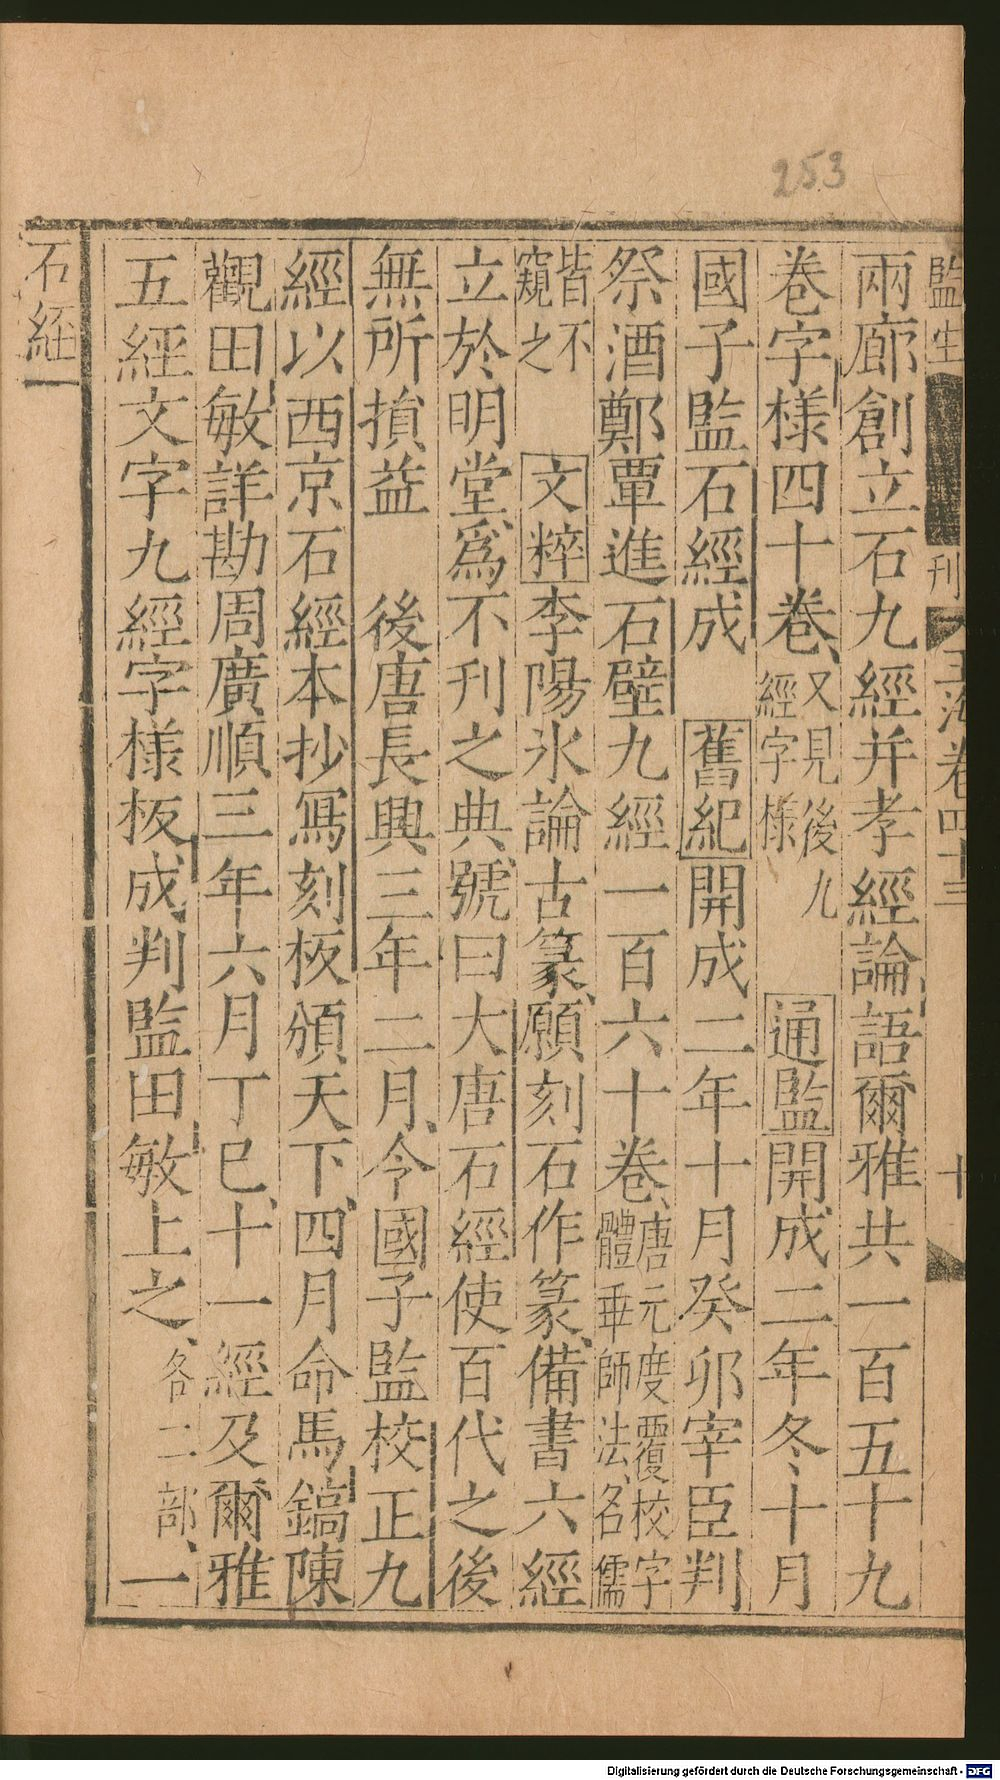 253
監生
刊
玉海卷四十三
十
兩廊創立石九經并孝經論語爾雅共一百五十九
卷字様四十卷又見後九經字様通監開成二年冬十月
國子監石經成舊紀開成二年十月癸卯宰臣判
祭酒鄭覃進石壁九經一百六十卷唐元度覆校字體乖師法名儒
皆不窺之文粹李陽氷論古篆願刻石作篆備書六經
立於明堂爲不刊之典號曰大唐石經使百代之後
無所損益後唐長興三年二月令國子監校正九
經以西京石經本抄寫刻板頒天下四月命馬鎬陳
觀田敏詳勘周廣順三年六月丁巳十一經及爾雅
五經文字九經字様板成判監田敏上之各二部一
石經
Digitalisierung gefördert durch die Deutsche Forschungsgemeinschaft - DFG